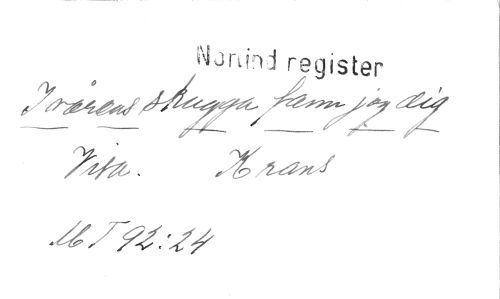 Norlind register
I vårens skugga fann jag dig
Visa. Krans
M T 92:24